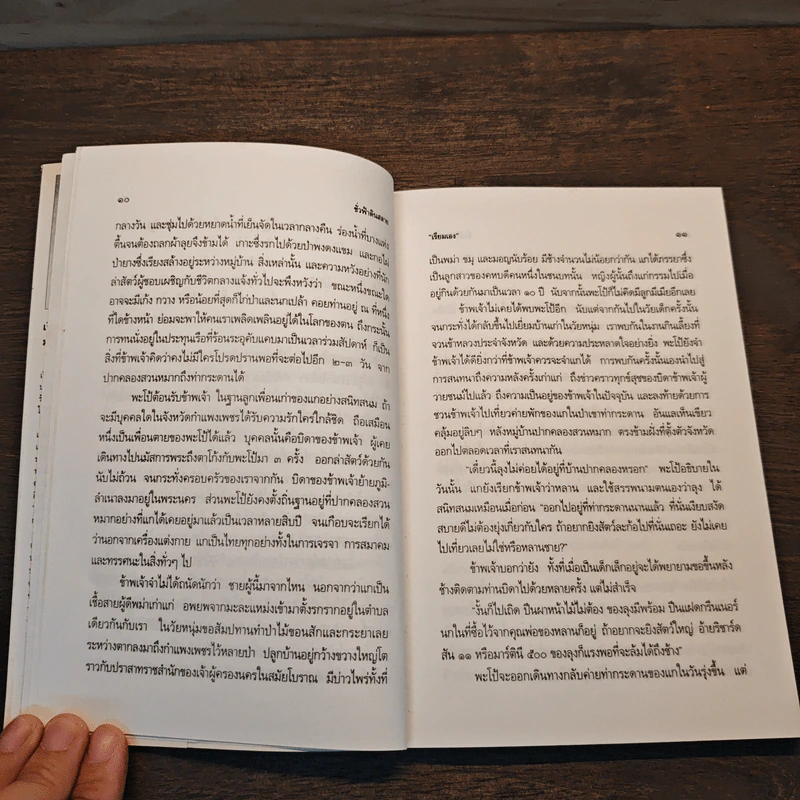 ๑๐
ชั่วฟ้าดินสลาย
กลางวัน และชุ่มไปด้วยหยาดน้ำที่เย็นจัดในเวลากลางคืน ร่องน้ำที่บางแห่ง
ตื้นจนต้องถลกผ้าลุยจึงข้ามได้ เกาะซึ่งรกไปด้วยป่าพงดงแขม และกอไผ่
ป่ายางซึ่งเรียงสล้างอยู่ระหว่างหมู่บ้าน สิ่งเหล่านั้น และความหวังอย่างที่นัก
ล่าสัตว์ผู้ชอบเผชิญกับชีวิตกลางแจ้งทั่วไปจะพึงหวังว่า ขณะหนึ่งขณะใด
อาจจะมีเก้ง กวาง หรือน้อยที่สุดก็ไก่ป่าและนกเปล้า คอยท่านอยู่ ณ ที่หนึ่ง
ที่ใดข้างหน้า ย่อมจะพาให้คนเราเพลิดเพลินอยู่ได้ในโลกของตน ถึงกระนั้น
การทนนั่งอยู่ในประทุนเรือที่ร้อนระอุคับแคบมาเป็นเวลาร่วมสัปดาห์ ก็เป็น
สิ่งที่ข้าพเจ้าคิดว่าคงไม่มีใครโปรดปรานพอที่จะต่อไปอีก ๒-๓ วัน จาก
ปากคลองสวนหมากถึงท่ากระดานได้
พะโป้ต้อนรับข้าพเจ้า ในฐานลูกเพื่อนเก่าของแกอย่างสนิทสนม ถ้า
จะมีบุคคลใดในจังหวัดกำแพงเพชรได้รับความรักใคร่ใกล้ชิด ถือเสมือน
หนึ่งเป็นเพื่อนตายของพะโป้ได้แล้ว บุคคลนั้นคือบิดาของข้าพเจ้า ผู้เคย
เดินทางไปนมัสการพระถึงตาโก้งกับพะโป้มา ๓ ครั้ง ออกล่าสัตว์ด้วยกัน
นับไม่ถ้วน จนกระทั่งครอบครัวของเราจากกัน บิดาของข้าพเจ้าย้ายภูมิ-
ลำเนาลงมาอยู่ในพระนคร ส่วนพะโป้ยังคงตั้งถิ่นฐานอยู่ที่ปากคลองสวน
หมากอย่างที่แกได้เคยอยู่มาแล้วเป็นเวลาหลายสิบปี จนเกือบจะเรียกได้
ว่านอกจากเครื่องแต่งกาย แกเป็นไทยทุกอย่างทั้งในการเจรจา การสมาคม
และทรรศนะในสิ่งทั่วๆ ไป
ข้าพเจ้าจำไม่ได้ถนัดนักว่า ชายผู้นี้มาจากไหน นอกจากว่าแกเป็น
เชื้อสายผู้ดีพม่าเก่าแก่ อพยพจากมะละแหม่งเข้ามาตั้งรกรากอยู่ในตำบล
เดียวกันกับเรา ในวัยหนุ่มขอสัมปทานทำป่าไม้ขอนสักและกระยาเลย
ระหว่างตากลงมาถึงกำแพงเพชรไว้หลายป่า ปลูกบ้านอยู่กว้างขวางใหญ่โต
ราวกับปราสาทราชสำนักของเจ้าผู้ครองนครในสมัยโบราณ มีบ่าวไพร่ทั้งที่
"เรียมเอง"
๑๑
เป็นพม่า ขมุ และมอญนับร้อย มีช้างจำนวนไม่น้อยกว่ากัน แกได้ภรรยาซึ่ง
เป็นลูกสาวของคหบดีคนหนึ่งในชนบทนั้น หญิงผู้นั้นถึงแก่กรรมไปเมื่อ
อยู่กินด้วยกันมาเป็นเวลา ๑๐ ปี นับจากนั้นพะโป้ก็ไม่คิดมีลูกมีเมียอีกเลย
ข้าพเจ้าไม่เคยได้พบพะโป้อีก นับแต่จากกันไปในวัยเด็กครั้งนั้น
จนกระทั่งได้กลับขึ้นไปเยี่ยมบ้านเก่าในวัยหนุ่ม เราพบกันในงานกินเลี้ยงที่
จวนข้าหลวงประจำจังหวัด และด้วยความประหลาดใจอย่างยิ่ง พะโป้ยังจำ
ข้าพเจ้าได้ดียิ่งกว่าที่ข้าพเจ้าควรจะจำแกได้ การพบกันครั้งนั้นเองนำไปสู่
การสนทนาถึงความหลังครั้งเก่าแก่ ถึงข่าวคราวทุกข์สุขของบิดาข้าพเจ้าผู้
วายชนม์ไปแล้ว ถึงความเป็นอยู่ของข้าพเจ้าในปัจจุบัน และลงท้ายด้วยการ
ชวนข้าพเจ้าไปเที่ยวค่ายพักของแกในป่าเขาท่ากระดาน อันแลเห็นเขียว
คลุ้มอยู่ลิบๆ หลังหมู่บ้านปากคลองสวนหมาก ตรงข้ามฝั่งที่ตั้งตัวจังหวัด
ออกไปตลอดเวลาที่เราสนทนากัน
"เดี๋ยวนี้ลุงไม่ค่อยได้อยู่ที่บ้านปากคลองหรอก" พะโป้อธิบายใน
วันนั้น แกยังเรียกข้าพเจ้าว่าหลาน และใช้สรรพนามตนเองว่าลุง ได้
สนิทสนมเหมือนเมื่อก่อน "ออกไปอยู่ที่ท่ากระดานนานแล้ว ที่นั่นเงียบสงัด
สบายดีไม่ต้องยุ่งเกี่ยวกับใคร ถ้าอยากยิงสัตว์ละก้อไปที่นั่นเถอะ ยังไม่เคย
ไปเที่ยวเลยไม่ใช่หรือหลานชาย?"
ข้าพเจ้าบอกว่ายัง ทั้งที่เมื่อเป็นเด็กเล็กอยู่จะได้พยายามขอขึ้นหลัง
ช้างติดตามท่านบิดาไปด้วยหลายครั้ง แต่ไม่สำเร็จ
"งั้นก็ไปเถิด ปืนผาหน้าไม้ไม่ต้อง ของลุงมีพร้อม ปืนแฝดกรีนเนอร์
นกในที่ซื้อไว้จากคุณพ่อของหลานก็อยู่ ถ้าอยากจะยิงสัตว์ใหญ่ อ้ายริชาร์ด
สัน ๑๑ หรือมาร์ตินี ๕๐๐ ของลุงก็แรงพอที่จะล้มได้ถึงช้าง"
พะโป้จะออกเดินทางกลับค่ายท่ากระดานของแกในวันรุ่งขึ้น แต่